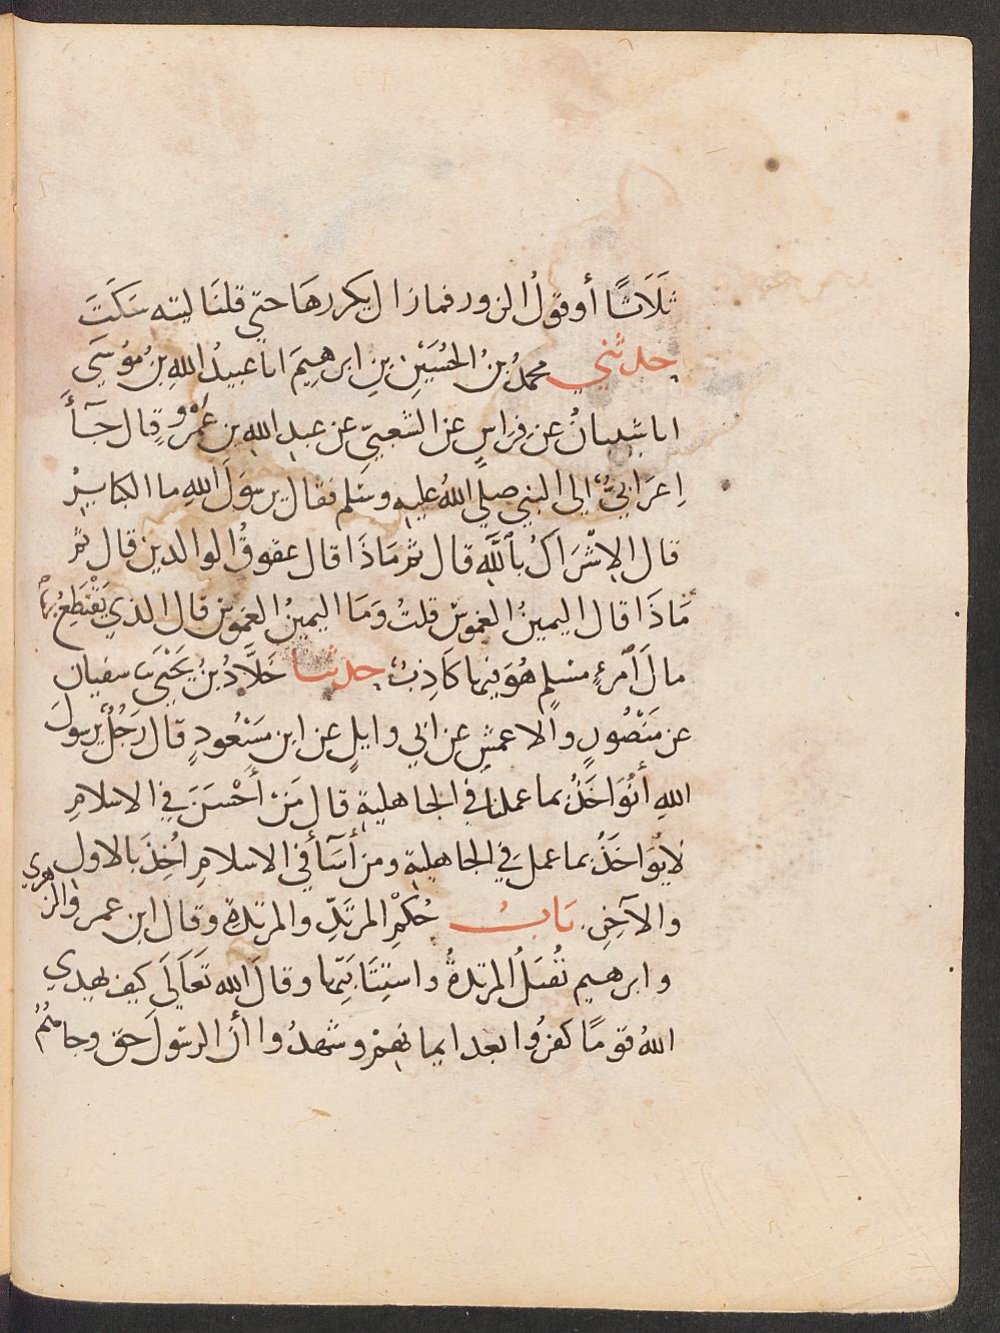 ثَلَاثًا أو قولُ الزور فمازال يكررهَا حتي قلنَا ليته سَكَتَ
حدثني محمدُ بنُ الحُسَيْنِ بنِ ابرهيمَ انا عبيدُ اللهِ بنُ مؤسَي
انا شيبانُ عن فِرَاسٍ عن الشعبيِّ عن عبدِ اللهِ بن عَمْرٍو قال جَآءَ
اعرَابيٌّ الى النبي صلي اللهُ عليه وسَلم فقال يرسولَ اللهِ ما الكبايرُ
قال الإشْرَاكُ بٱللَّهِ قال ثم مَاذَا قال عقوقُ الوالدين قال ثم
مَاذَا قال اليمينُ الغموسُ قلتُ وَمَا اليمينُ الغموسُ قال الذي يَقْتَطِعُ بها
مالَ ٱمرءٍ مسْلمٍ هُوَ فيها كَاذِبٌ حدثنا خَلَّادُ بنُ يَحْيَى سفيان
عن مَنْصُورٍ والاعمشِ عن ابي وايلٍ عن ابن مَسْعُودٍ قال رَجُلٌ يرسولَ
اللهِ أنُوَاخَذُ بما عملنا في الجاهلية قال مَنْ أَحْسَنَ في الاسلامِ
لا يُوَاخَذُ بما عملَ في الجاهلية ومن أَسَآءَ في الاسلامِ أُخِذَ بالاولِ
والآخِرِ بَابُ حُكْمِ المرتَدِّ والمرتدةِ وقال ابن عمر والزهري
وابرهيم تُقتَلُ المرتدةُ واستِتَابَتِهما وقالَ الله تَعَالَى كيف يهدي
اللهُ قومًا كفرُوا بعد ايمانِهم وشَهدُوا أنَّ الرسُولَ حق وجاءَهُمُ